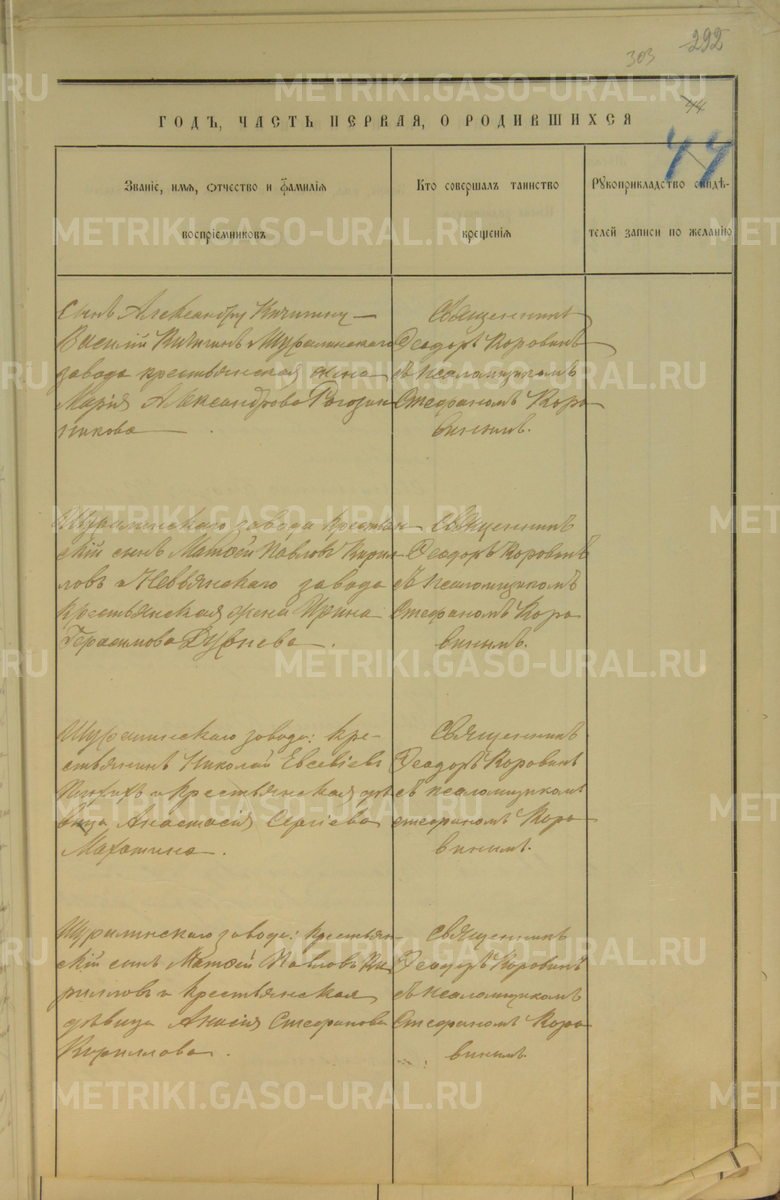 292
303
44
ГОДЪ, ЧАСТЬ ПЕРВАЯ, О РОДИВШИХСЯ
44
Званіе, имя, отчество и фамилія
воспріемниковъ
Кто совершалъ таинство
крещенія
Рукоприкладство свидѣ-
телей записи по желанію
сынъ Александръ Кичигинъ
Василій Кичигинъ и Шуралинскаго
завода крестьянская жена
Марія Александрова Рогозин
никова
Священникъ
Ѳеодоръ Коровинъ
съ псаломщикомъ
Стефаномъ Коро
винымъ.
Шуралинскаго завода крестьян
скій сынъ Матѳей Павловъ Кирил
ловъ и Невьянскаго завода
крестьянская жена Ирина
Герасимова
Священникъ
Ѳеодоръ Коровинъ
съ псаломщикомъ
Стефаномъ Коро
винымъ.
Шуралинскаго завода: кре-
стьянинъ Николай Евсевіевъ
и крестьянская дѣ
вица Анастасія Сергіева
Священникъ
Ѳеодоръ Коровинъ
съ псаломщикомъ
Стефаномъ Коро
винымъ.
Шуралинскаго завода: крестьян-
скій сынъ Матѳей Павловъ Ки
рилловъ и крестьянская
дѣвица Анисія Стефанова
Кириллова.
Священникъ
Ѳеодоръ Коровинъ
съ псаломщикомъ
Стефаномъ Коро
винымъ.
METRIKI.GASO-URAL.RU